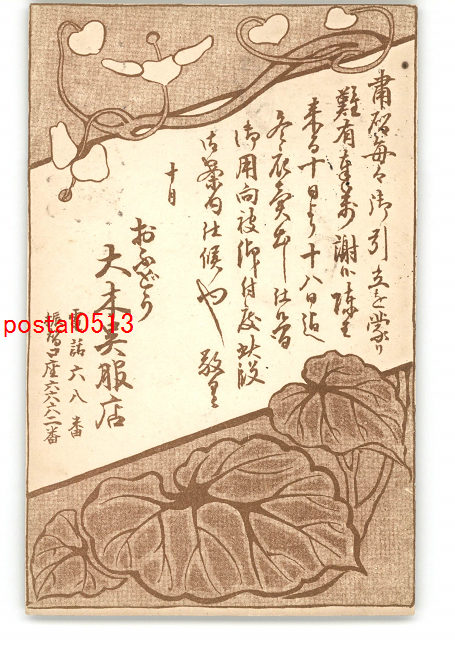 粛啓毎々御引立を蒙り
難有奉万謝候陳者
来る十日より十八日迄
冬衣売出し仕候間
御用向被仰付度此段
御案内仕候也 敬具
十月
おふどう
大木呉服店
電話六八番
振替口座六六六二番
postal0513